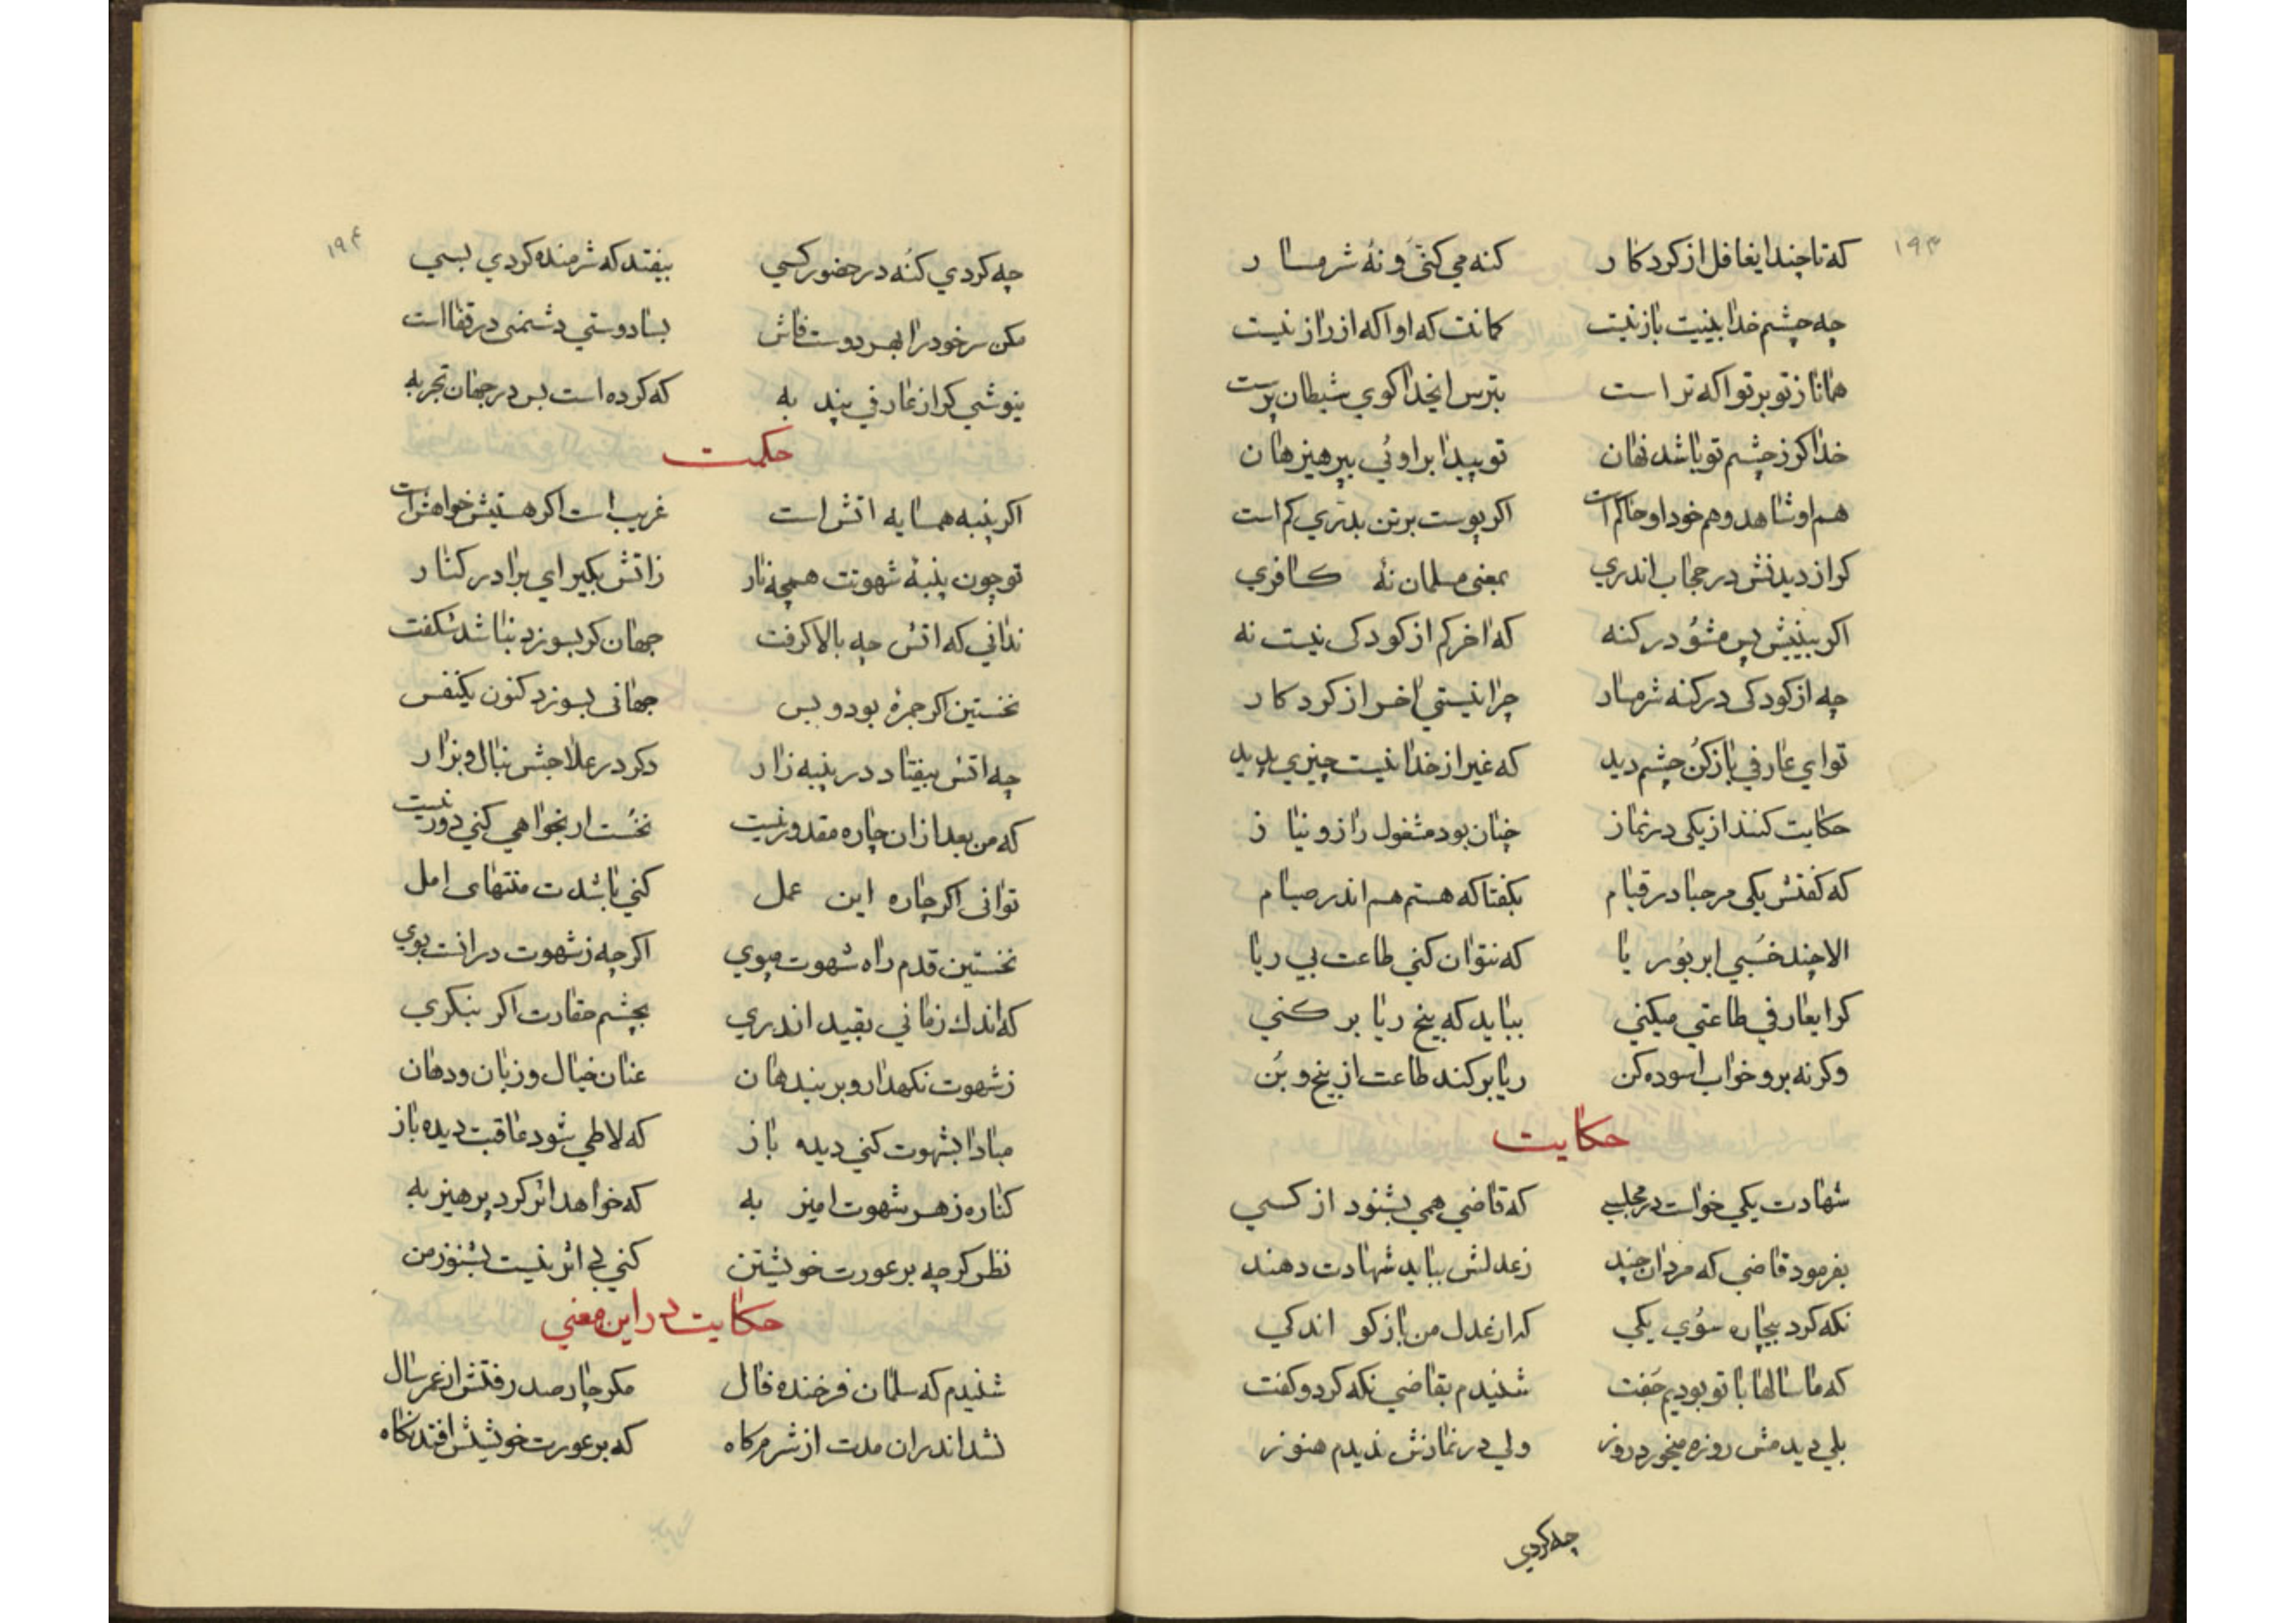 ۱۹۳
که تا چند ایغافل از کردکار کنه می کنی و نهٔ شرمسار
چه چشم خدا بینیت باز نیست کمانت که او اکه از راز نیست
همانا ز تو بر تو اکه تر است بترس ایخدا کوی شیطان پرست
خدا کر ز چشم تو باشد نهان تو پیدا بر اوئی بپرهیز هان
هم او شاهد و هم خود او حاکم است اکر پوست بر تن بدری کم است
کر از دیدنش در حجاب اندری بمعنی مسلمان نهٔ کافری
اکر بینیش پس مشو در کنه که اخر کم از کودکی نیست نه
چه از کودکی در کنه شرمسار چرا نیستی اخر از کردکار
تو ای عارفی باز کن چشم دید که غیر از خدا نیست چیزی پدید
حکایت کنند از یکی در نماز چنان بود مشغول راز و نیاز
که کفتش یکی مرحبا در قیام بکفتا که هستم هم اندر صیام
الا چند خسبی ابر بوریا که نتوان کنی طاعت بی ریا
کر ایعارفی طاعتی میکنی بباید که بیخ ریا بر کنی
وکرنه برو خواب اسوده کن ریا بر کند طاعت از بیخ و بن
حکایت
شهادت یکی خواست در مجلسی که قاضی همی بشنود از کسی
بفرمود قاضی که مردان چند زعدلش بباید شهادت دهند
نکه کرد بیچاره سوی یکی که از عدل من باز کو اندکی
که ما سالها با تو بودیم جفت شنیدم بقاضی نکه کرد و کفت
بلی دیدمش روزه میخورد روز ولی در نمازش ندیدم هنوز
چه کردی
۱۹۴
چه کردی کنه در حضور کسی بیفتد که شرمنده کردی بسی
مکن سر خود را بهر دوست فاش بسا دوستی دشمنی در قفا است
نیوشی کر از عارفی پند به که کرده است بس در جهان تجربه
حکمت
اکر پنبه همسایه اتش است غریب است اکر هستیش خواهش است
تو چون پنبهٔ شهوتت همچه نار ز اتش بکیر ای برادر کنار
ندانی که اتش چه بالا کرفت جهان کر بسوزد نباشد شکفت
نخستین اکر جمرهٔ بود و بس جهانی بسوزد کنون یکنفس
چه اتش بیفتاد در پنبه زار دکر در علاجش بنال و بزار
که من بعد از ان چاره مقدور نیست نخست ار بخواهی کنی دور نیست
توانی اکر چاره این عمل کنی باشدت منتهای امل
نخستین قدم راه شهوت مپوی اکر چه ز شهوت در انست بوی
که اندک زمانی بقید اندری بچشم حقارت اکر بنکری
ز شهوت نکهدار و بر بند هان عنان خیال و زبان و دهان
مبادا بشهوت کنی دیده باز که لاطی شود عاقبت دیده باز
کناره ز هر شهوت امیز به که خواهد اثر کرد پرهیز به
نظر کر چه بر عورت خویشتن کنی بی اثر نیست بشنو ز من
حکایت در این معنی
شنیدم که سلمان فرخنده فال مکر چار صد رفتش از عمر سال
نشد اندران مدت از شرم کاه که بر عورت خویشش افتد نکاه